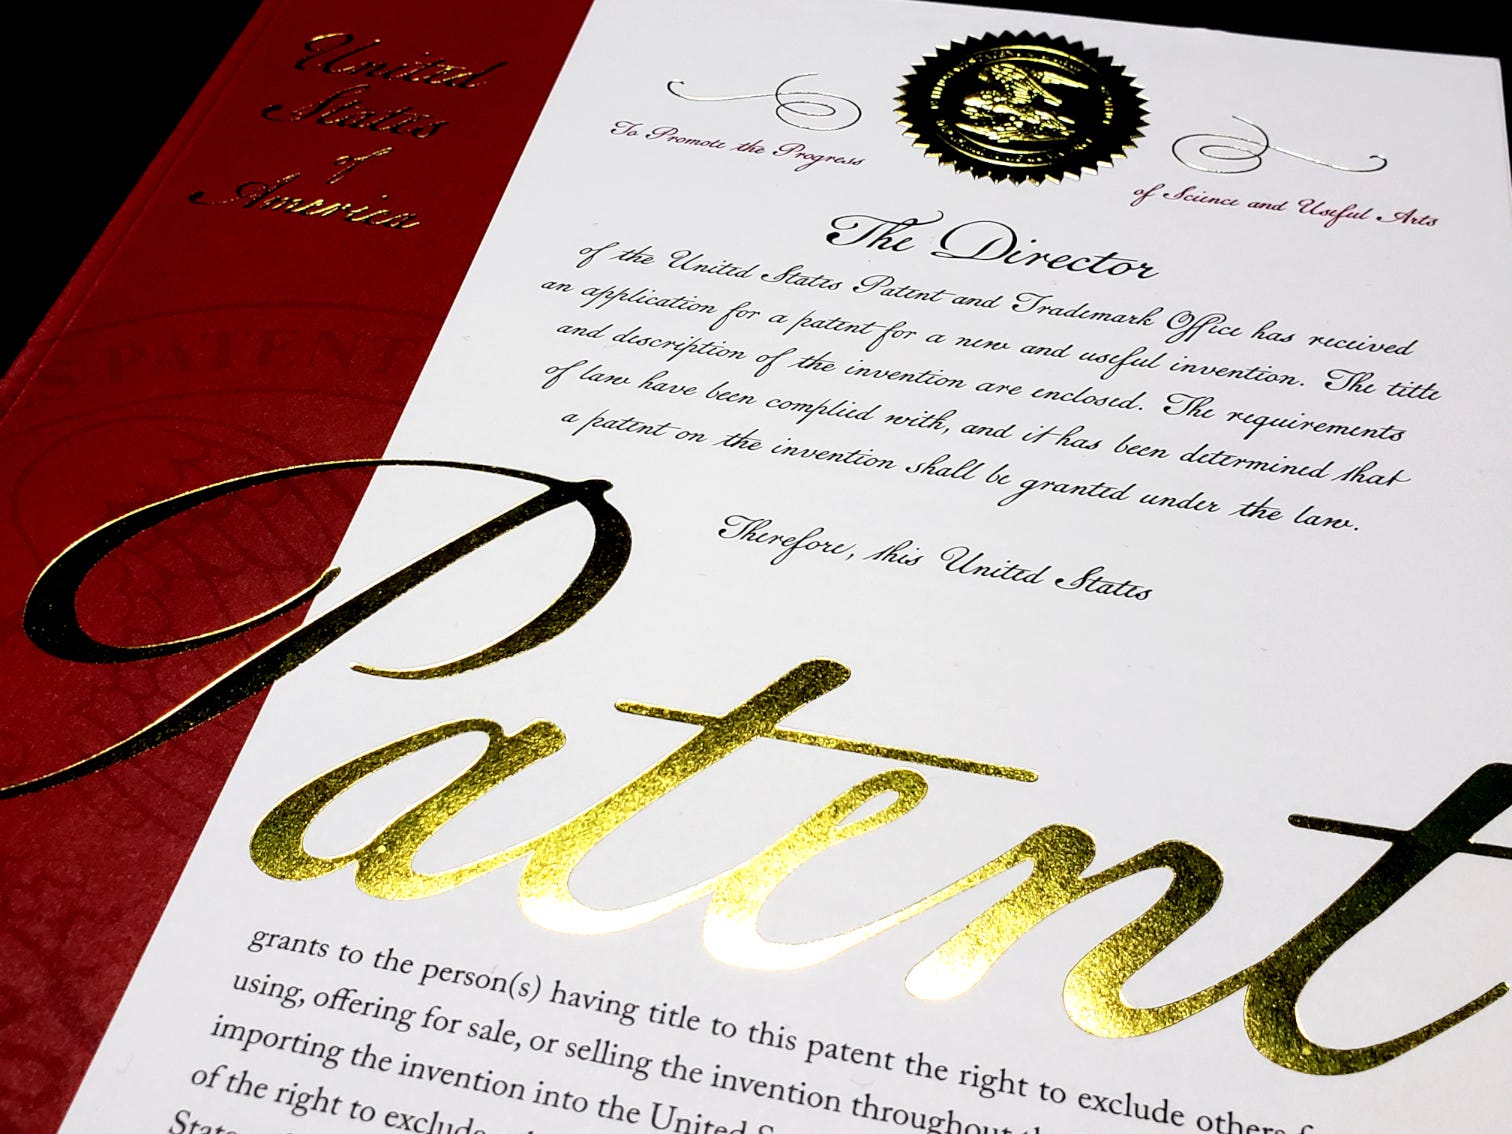 United
States
of
America
To Promote the Progress
of Science and Useful Arts
The Director
of the United States Patent and Trademark Office has received
an application for a patent for a new and useful invention. The title
and description of the invention are enclosed. The requirements
of law have been complied with, and it has been determined that
a patent on the invention shall be granted under the law.
Therefore, this United States
Patent
grants to the person(s) having title to this patent the right to exclude others
using, offering for sale, or selling the invention throughout
importing the invention into the United
of the right to exclude
PATENT